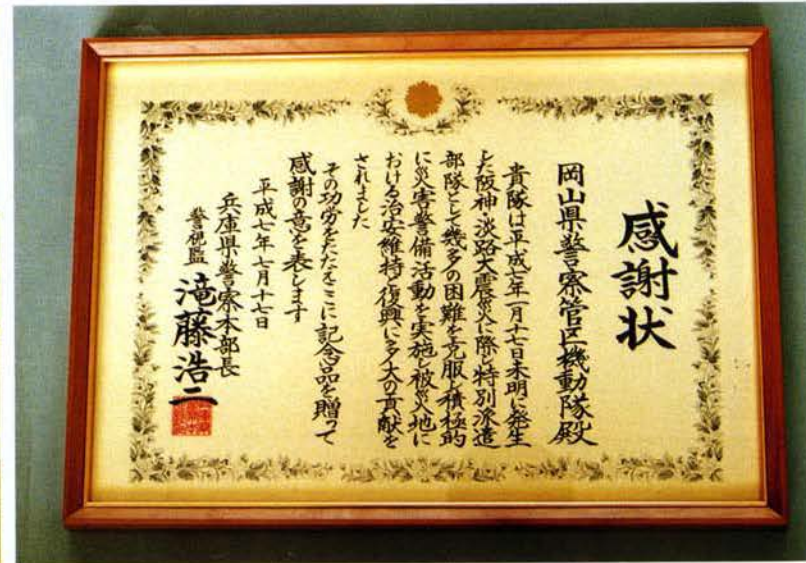 感謝状
岡山県警察管区機動隊殿
貴隊は平成七年一月十七日未明に発生
した阪神・淡路大震災に際し特別派遣
部隊として幾多の困難を克服し積極的
に災害警備活動を実施し被災地に
おける治安維持と復興に多大の貢献を
されました
その功労をたたえここに記念品を贈って
感謝の意を表します
平成七年七月十七日
兵庫県警察本部長
警視監 滝藤浩二